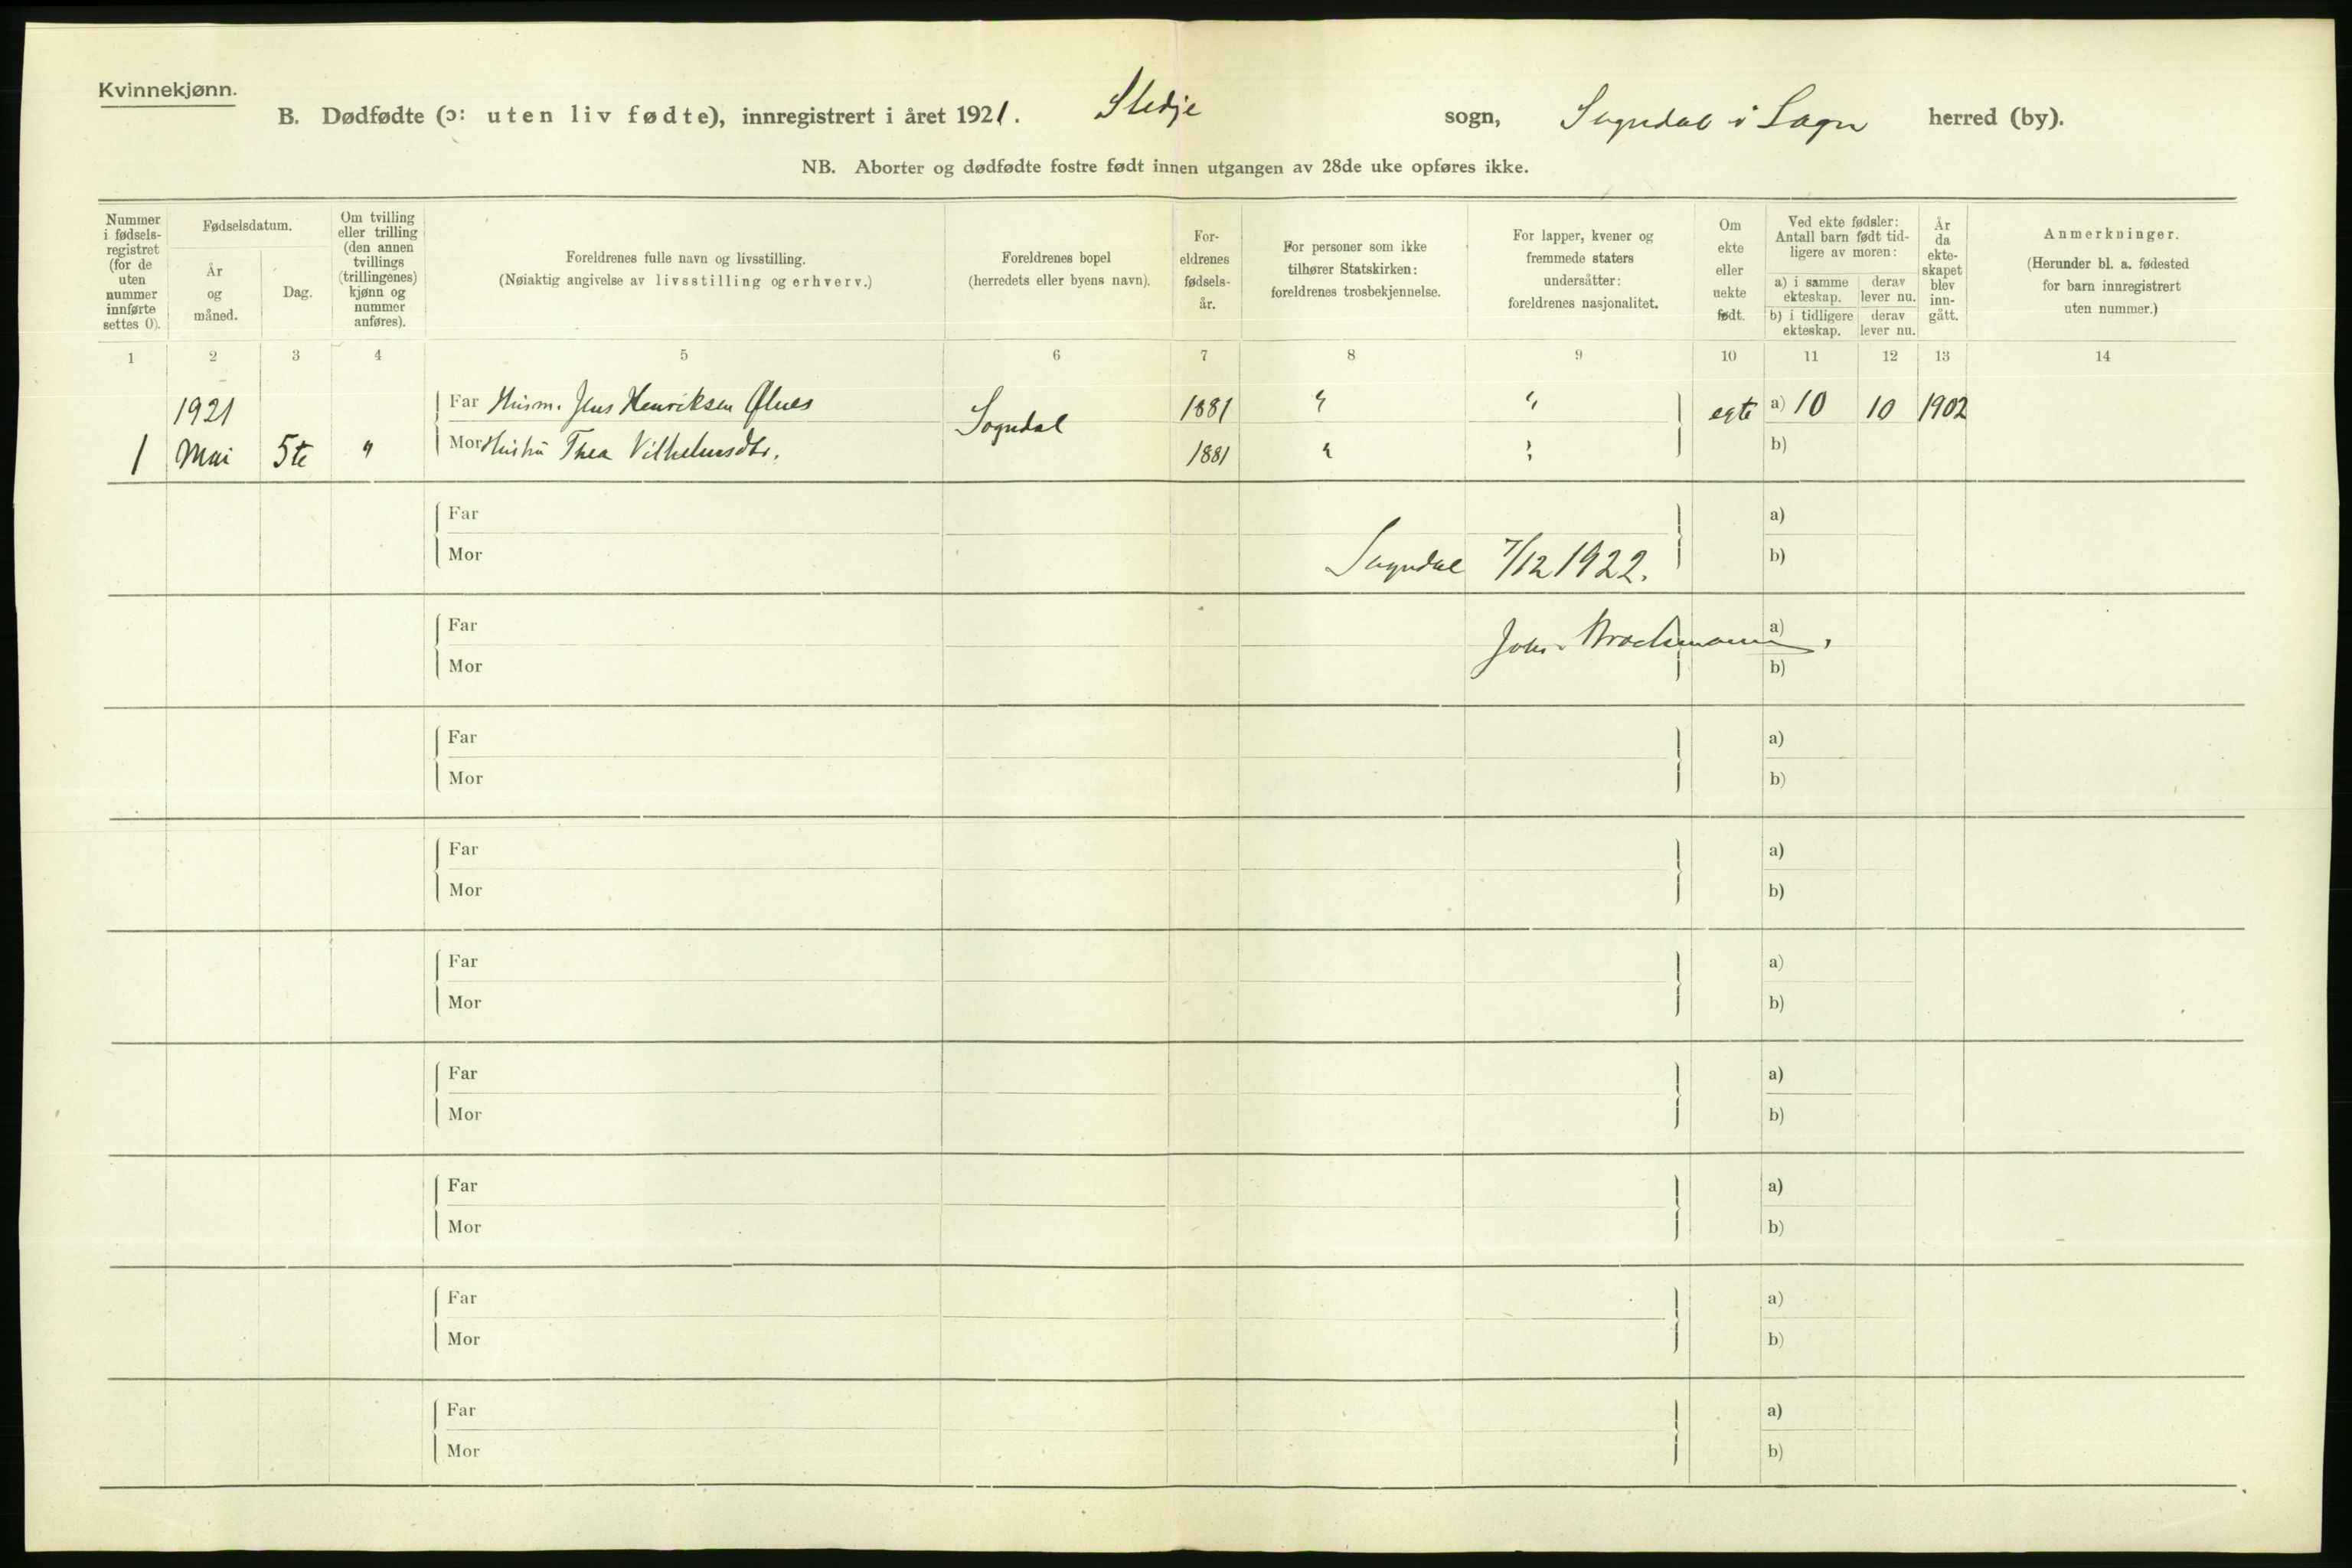 Kvinnekjønn.
B. Dødfødte (ɔ: uten liv fødte), innregistrert i året 1921. Stedje sogn, Sogndal i Sogn herred (by).
NB. Aborter og dødfødte fostre født innen utgangen av 28de uke opføres ikke.
Nummer i fødsels-registret (for de uten nummer innførte settes 0).
Fødselsdatum.
År og måned.
Dag.
Om tvilling eller trilling (den annen tvillings (trillingenes) kjønn og nummer anføres).
Foreldrenes fulle navn og livsstilling.
(Nøiaktig angivelse av livsstilling og erhverv.)
Foreldrenes bopel
(herredets eller byens navn).
For-eldrenes fødsels-år.
For personer som ikke tilhører Statskirken: foreldrenes trosbekjennelse.
For lapper, kvener og fremmede staters undersåtter: foreldrenes nasjonalitet.
Om ekte eller uekte født.
Ved ekte fødsler: Antall barn født tid-ligere av moren:
a) i samme ekteskap. derav lever nu.
b) i tidligere ekteskap. derav lever nu.
År da ekte-skapet blev inn-gått.
Anmerkninger.
(Herunder bl. a. fødested for barn innregistrert uten nummer.)
1 2 3 4 5 6 7 8 9 10 11 12 13 14
1921 Far Husm. Jens Henriksen Ølnes Sogndal 1881 " " egte a) 10 10 1902
1 Mai 5te " Mor Hustru Thea Vilhelmsdtr. 1881 " " b)
Far a)
Mor Sogndal 7/12 1922. b)
Far Johs. Brochmann. a)
Mor b)
Far a)
Mor b)
Far a)
Mor b)
Far a)
Mor b)
Far a)
Mor b)
Far a)
Mor b)
Far a)
Mor b)
Far a)
Mor b)